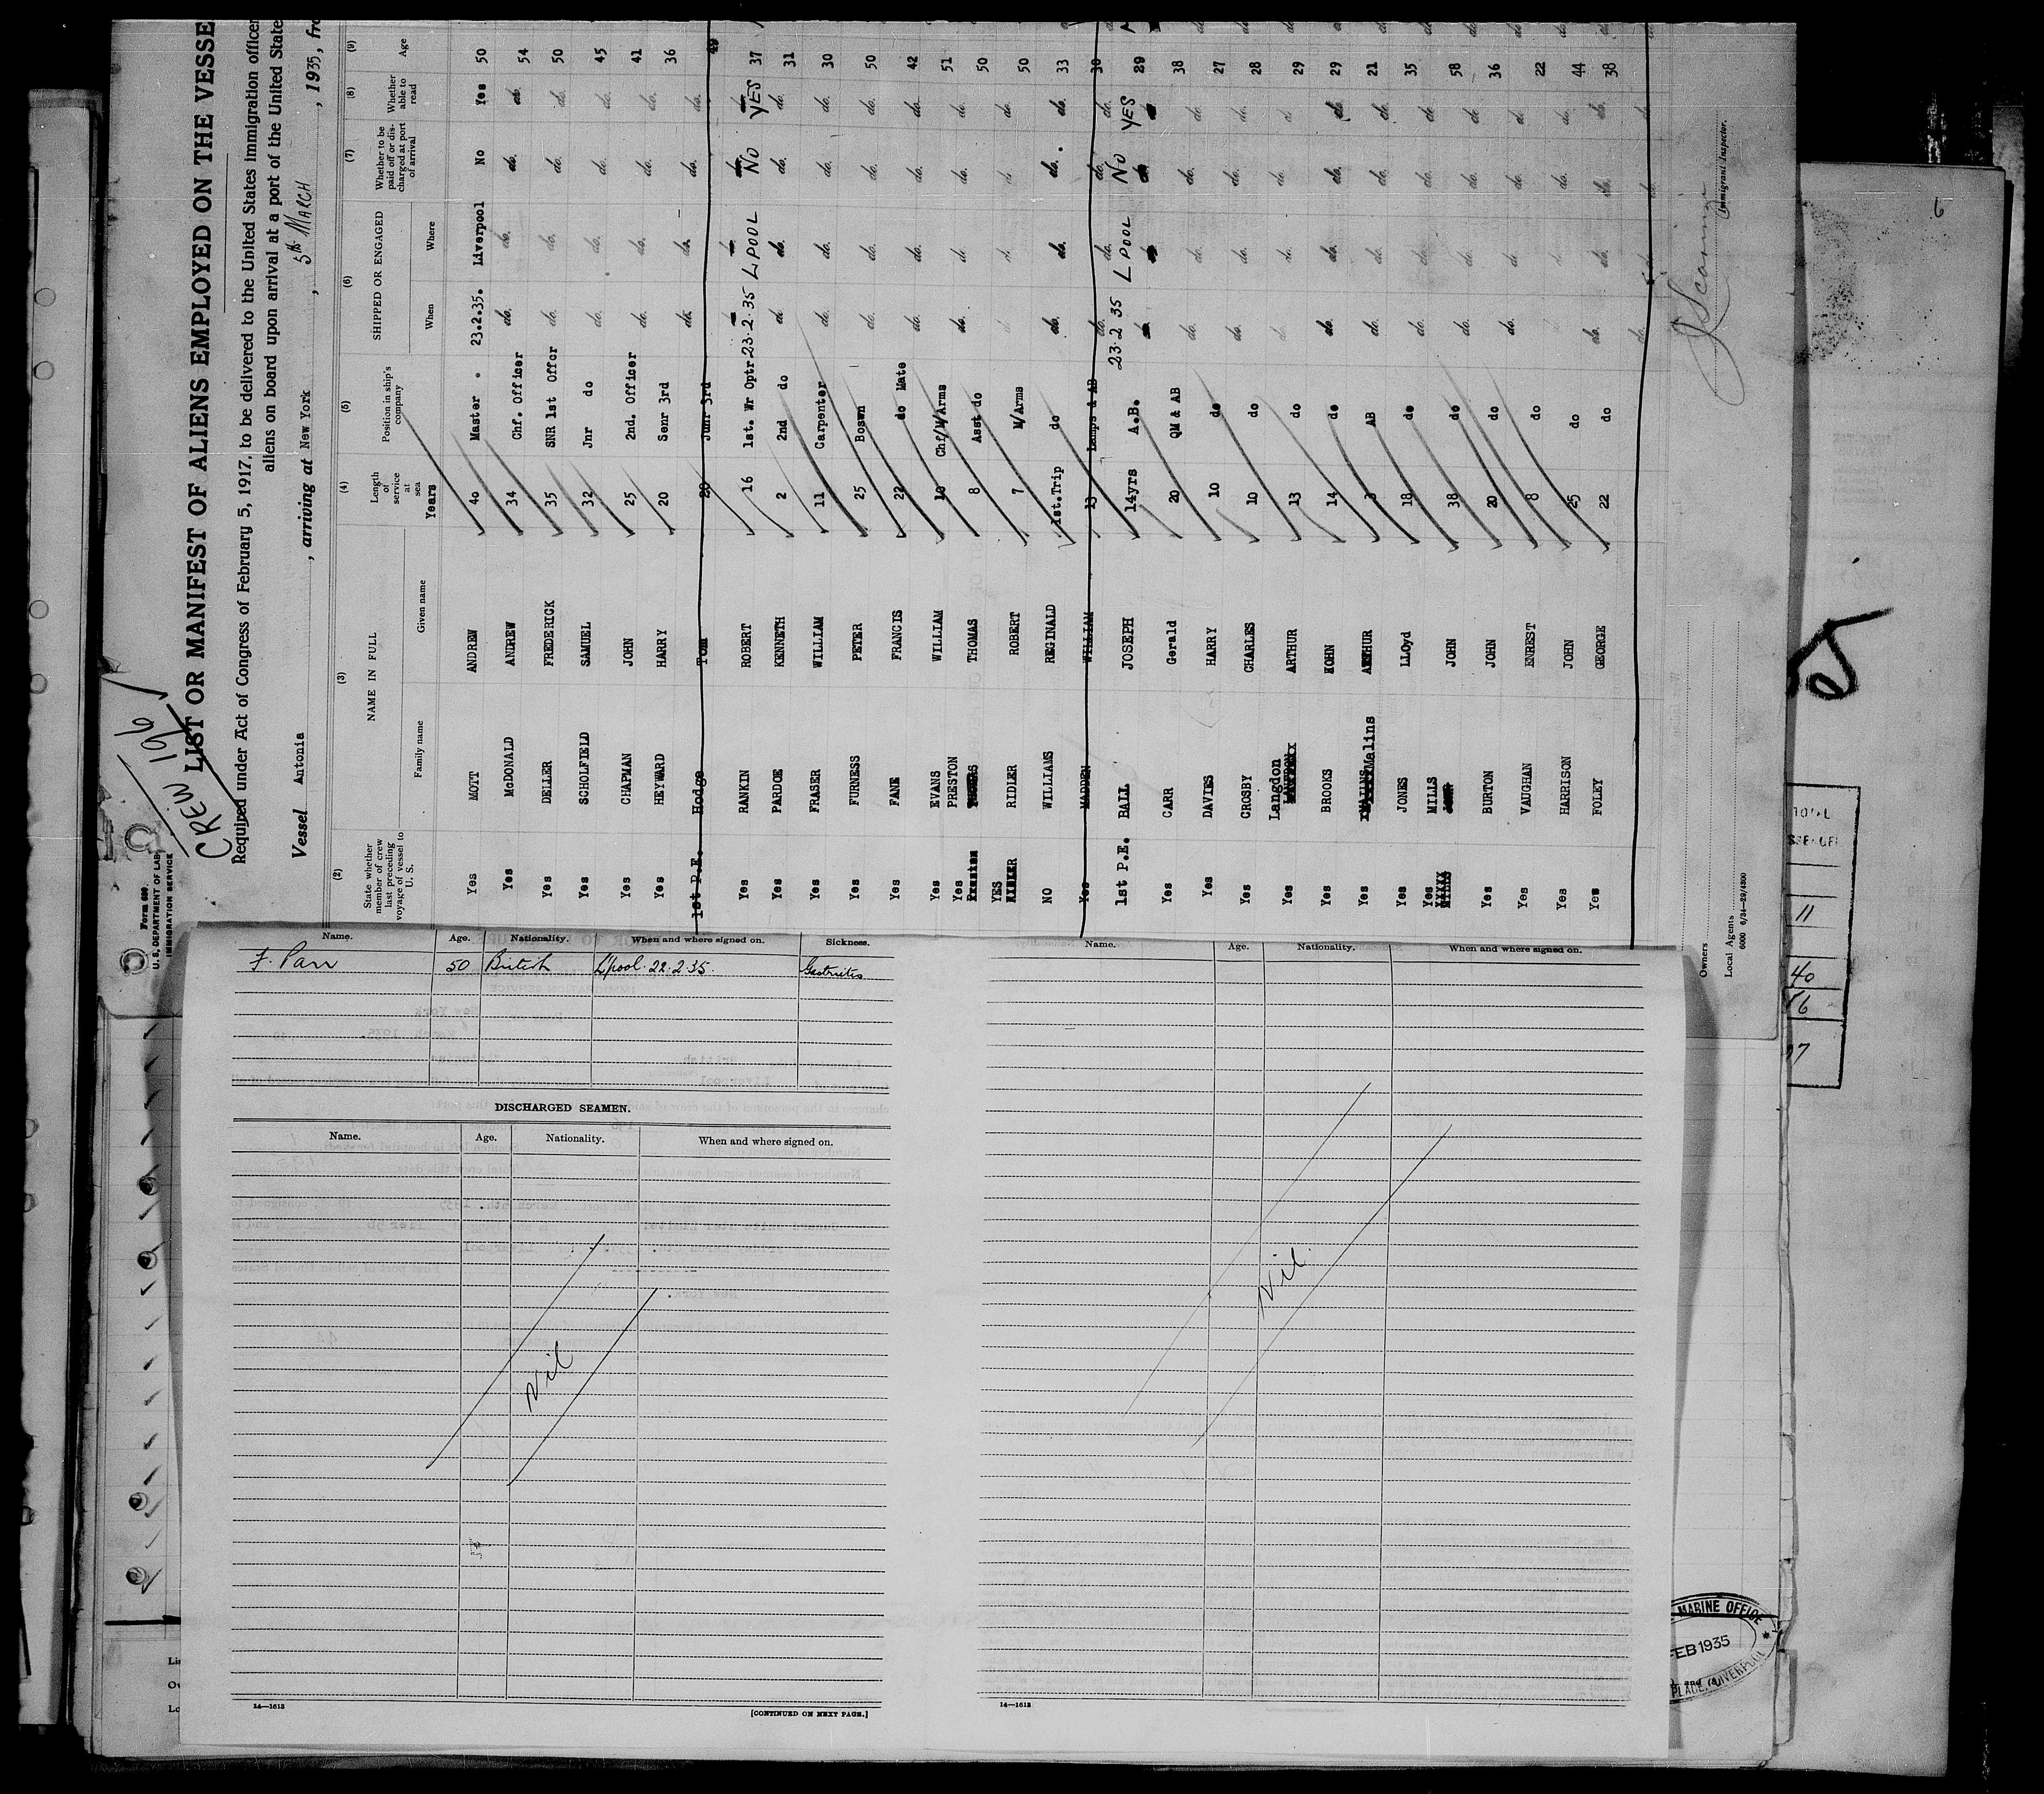 Form 689.
U. S. DEPARTMENT OF LAB
IMMIGRATION SERVICE
CREW 196
LIST OR MANIFEST OF ALIENS EMPLOYED ON THE VESSE
Required under Act of Congress of February 5, 1917, to be delivered to the United States immigration officer
aliens on board upon arrival at a port of the United State
Vessel Antonia , arriving at New York , 5th MARCH , 1935, fro
(2) (3) (4) (5) (6) (7) (8) (9)
State whether member of crew last preceding voyage of vessel to U. S.
NAME IN FULL
Family name Given name
Length of service at sea
Years
Position in ship's company
SHIPPED OR ENGAGED
When Where
Whether to be paid off or discharged at port of arrival
Whether able to read
Age
Yes MOTT ANDREW 40 Master . 23.2.35. Liverpool No Yes 50
Yes McDONALD ANDREW 34 Chf. Officer do. do. do. do. 54
Yes DELLER FREDERICK 35 SNR 1st Offcr do. do. do. do. 50
Yes SCHOLFIELD SAMUEL 32 Jnr do do. do. do. do. 45
Yes CHAPMAN JOHN 25 2nd. Officer do. do. do. do. 41
Yes HEYWARD HARRY 20 Senr 3rd do. do. do. do. 36
1st P.E. Hodge Tom 20 Junr 3rd 49
Yes RANKIN ROBERT 16 1st. Wr Optr 23.2.35 LPOOL NO YES 37
Yes PARDOE KENNETH 2 2nd do do. do. do. do. 31
Yes FRASER WILLIAM 11 Carpenter do. do. do. do. 30
Yes FURNESS PETER 25 Boswn do. do. do. do. 50
Yes FANE FRANCIS 22 do Mate do. do. do. do. 42
Yes EVANS WILLIAM 10 Chf/M/Arms do. do. do. do. 51
Yes PRESTON THOMAS 8 Asst do 50
YES RIDLER ROBERT 7 M/Arms 50
NO WILLIAMS REGINALD 1st.Trip do do. do. do. do. 33
Yes MADDEN WILLIAM 13 Lamps & AB do. do. do. do. 30
1st P.E. BALL JOSEPH 14yrs A.B. 23.2 35 LPOOL NO YES 29
Yes CARR Gerald 20 QM & AB do. do. do. do. 38
Yes DAVIES HARRY 10 do do. do. do. do. 27
Yes CROSBY CHARLES 10 do do. do. do. do. 28
Yes Langdon ARTHUR 13 do do. do. do. do. 29
Yes BROOKS KOHN 14 do do. do. do. do. 29
Yes Malins ARTHUR 3 AB do. do. do. do. 21
Yes JONES LLOyd 18 do do. do. do. do. 35
Yes MILLS JOHN 38 do do. do. do. do. 58
Yes BURTON JOHN 20 do do. do. do. do. 36
Yes VAUGHAN ENREST 8 do 22
Yes HARRISON JOHN 25 do 44
Yes FOLEY GEORGE 22 do 38
Immigrant Inspector.
Owners
Local Agents
6000 6/34—29/4300
Name. Age. Nationality. When and where signed on. Sickness.
F. Parr 50 British L'pool. 22.2.35. Gastrites
DISCHARGED SEAMEN.
Name. Age. Nationality. When and where signed on.
Nil
14—1613
[CONTINUED ON NEXT PAGE.]
Name. Age. Nationality. When and where signed on.
Nil.
14—1613
11
40
97
6
MARINE OFFICE
FEB 1935